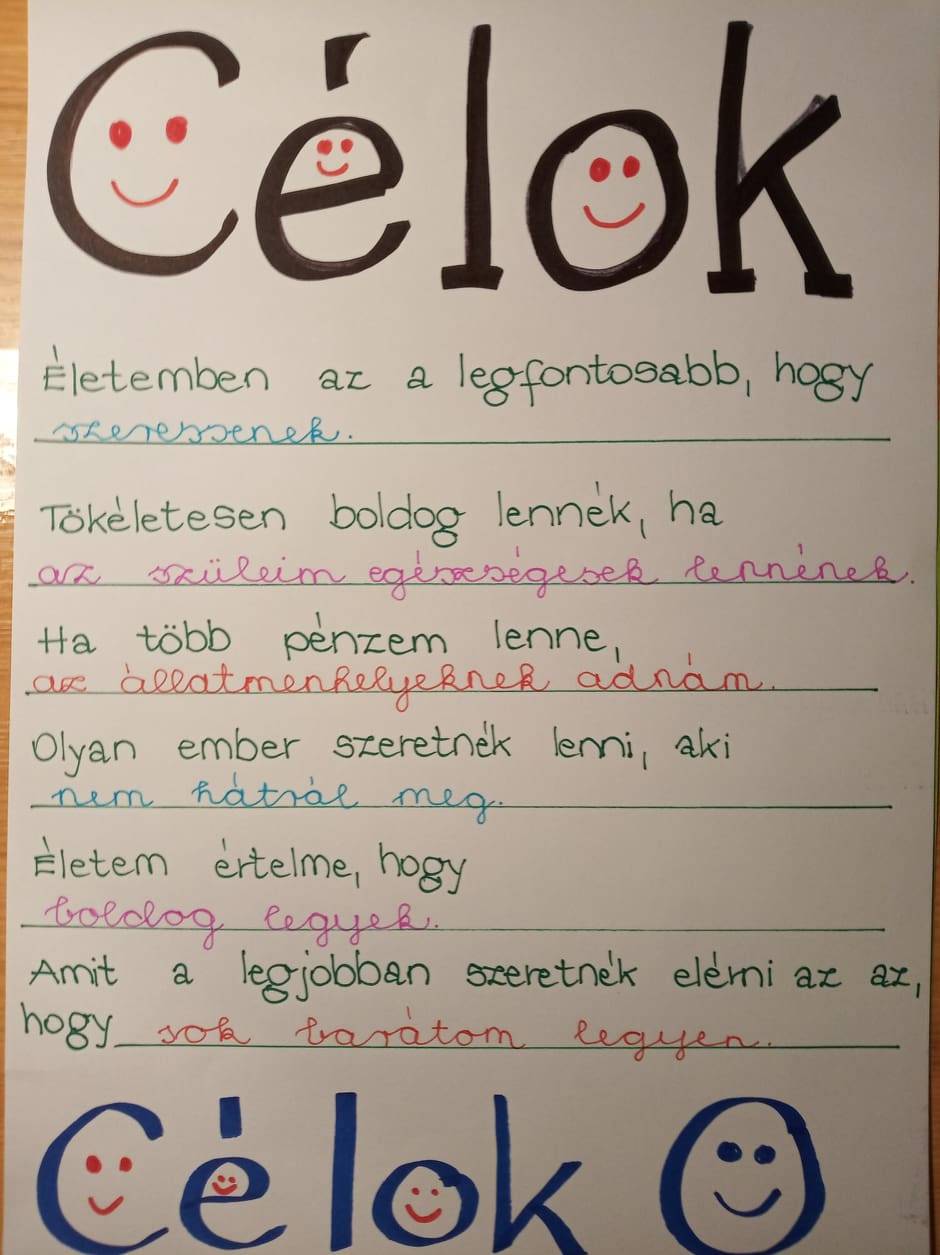 Célok
Életemben az a legfontosabb, hogy
szeressenek.
Tökéletesen boldog lennék, ha
az szüleim egészségesek lennének.
Ha több pénzem lenne,
az állatmenhelyeknek adnám.
Olyan ember szeretnék lenni, aki
nem hátrál meg.
Életem értelme, hogy
boldog legyek.
Amit a legjobban szeretnék elérni az az,
hogy sok barátom legyen.
Célok